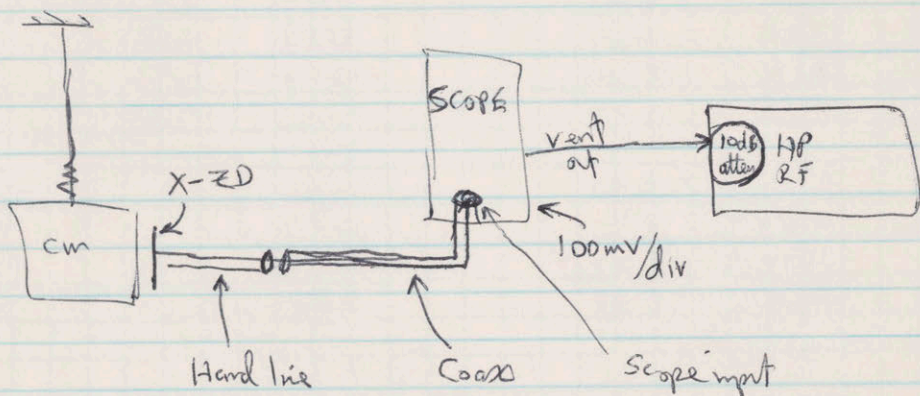 SCOPE
vert
out
10dB
atten
HP
RF
X-ZD
cm
100mV/
div
Hard line
Coax
Scope input